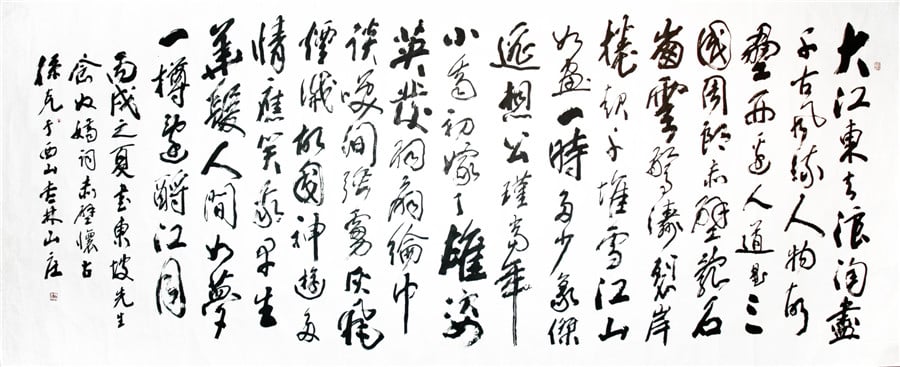 大江東去浪淘盡
千古風流人物故
壘西邊人道是三
國周郎赤壁亂石
崩雲驚濤裂岸
捲起千堆雪江山
如畫一時多少豪傑
遙想公瑾當年
小喬初嫁了雄姿
英發羽扇綸巾
談咲間強虜灰飛
煙滅故國神遊多
情應笑我早生
華髮人間如夢
一樽還酹江月
丙戌之夏書東坡先生
念奴嬌詞赤壁懷古
孫克于西山杏林山庄